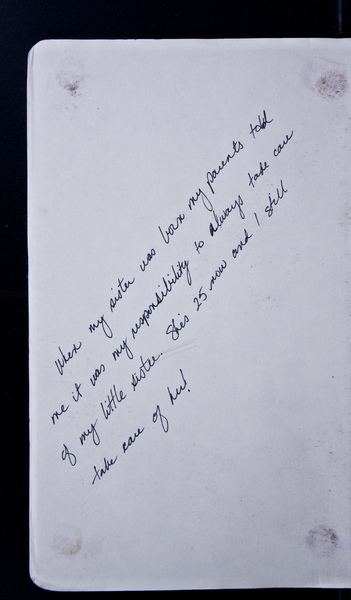 When my sister was born my parents told
me it was my responsibility to always take care
of my little sister. She's 25 now and I still
take care of her!